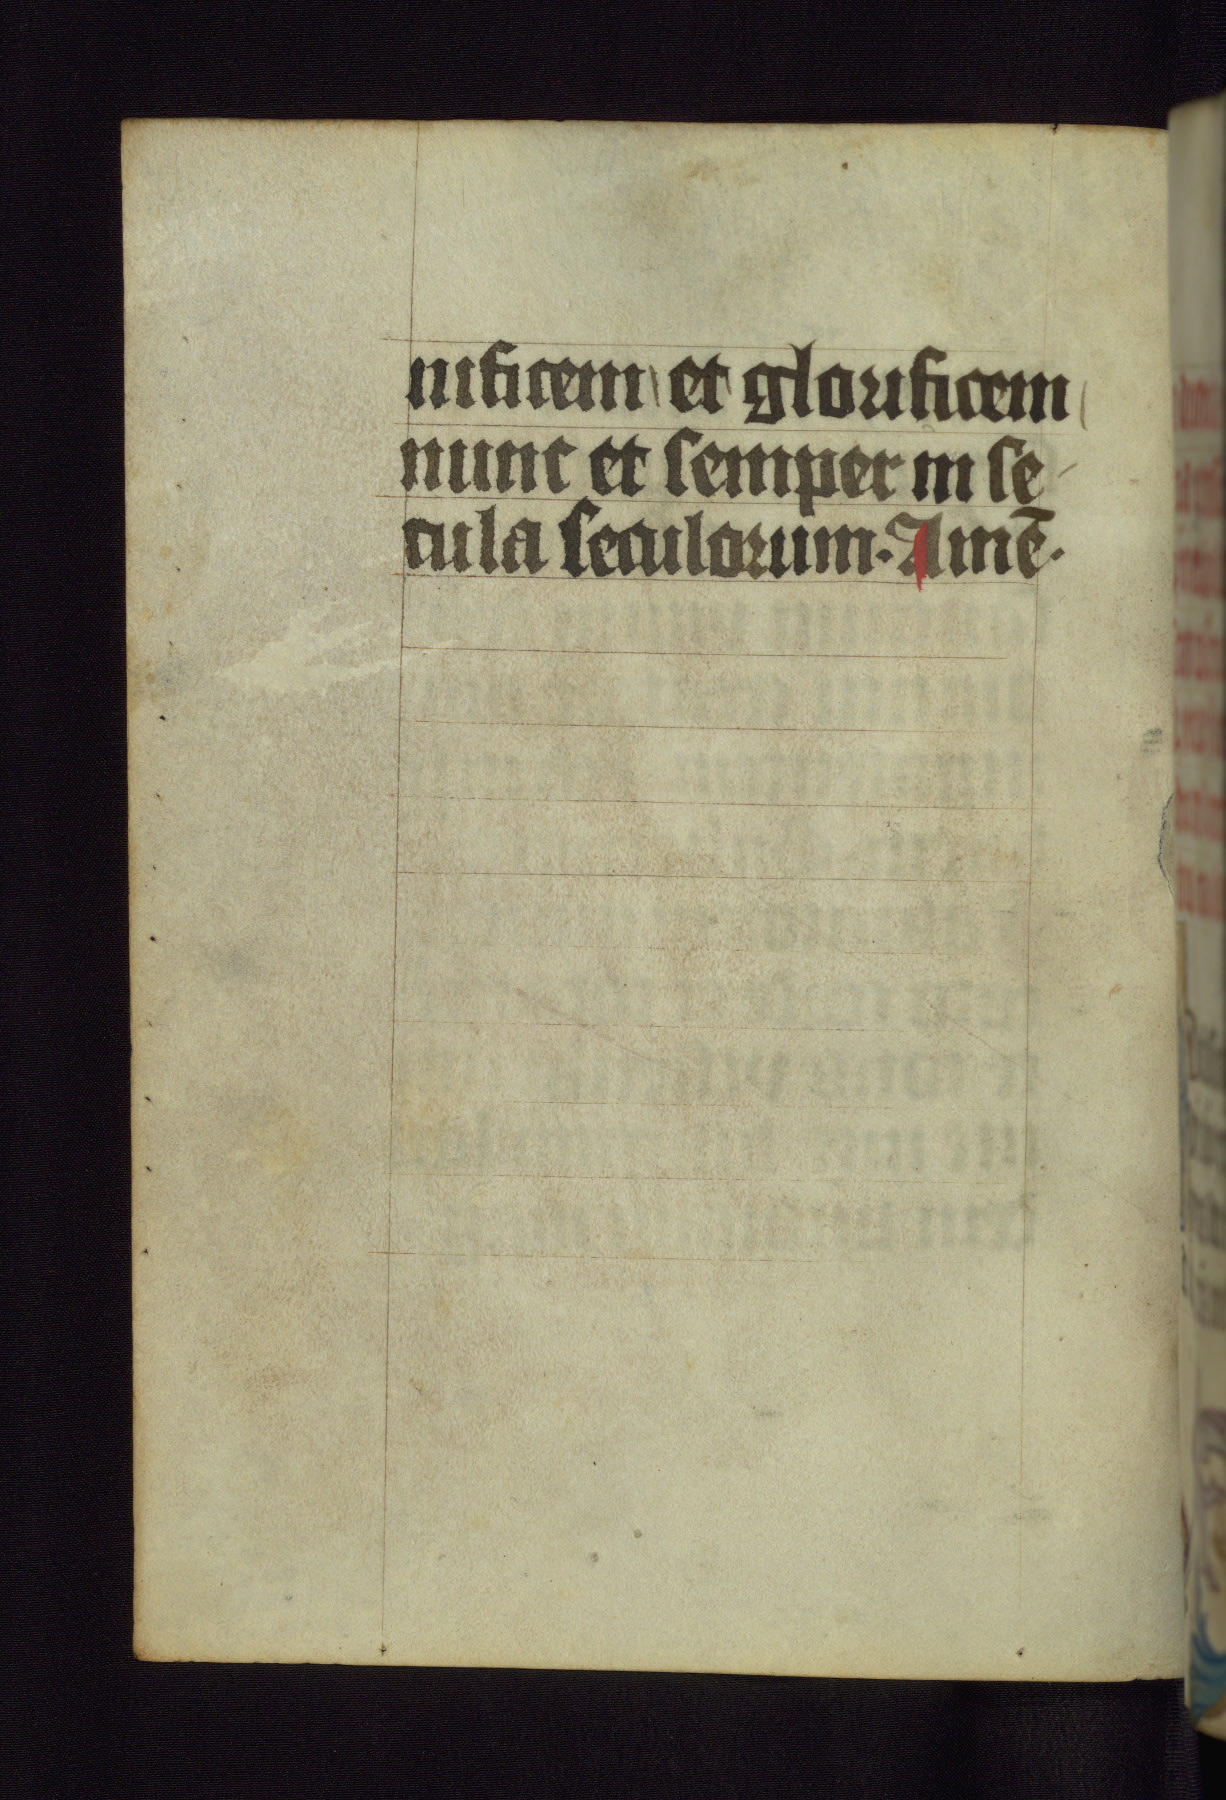 nificem et glorificem
nunc et semper in se
cula seculorum. Amē.